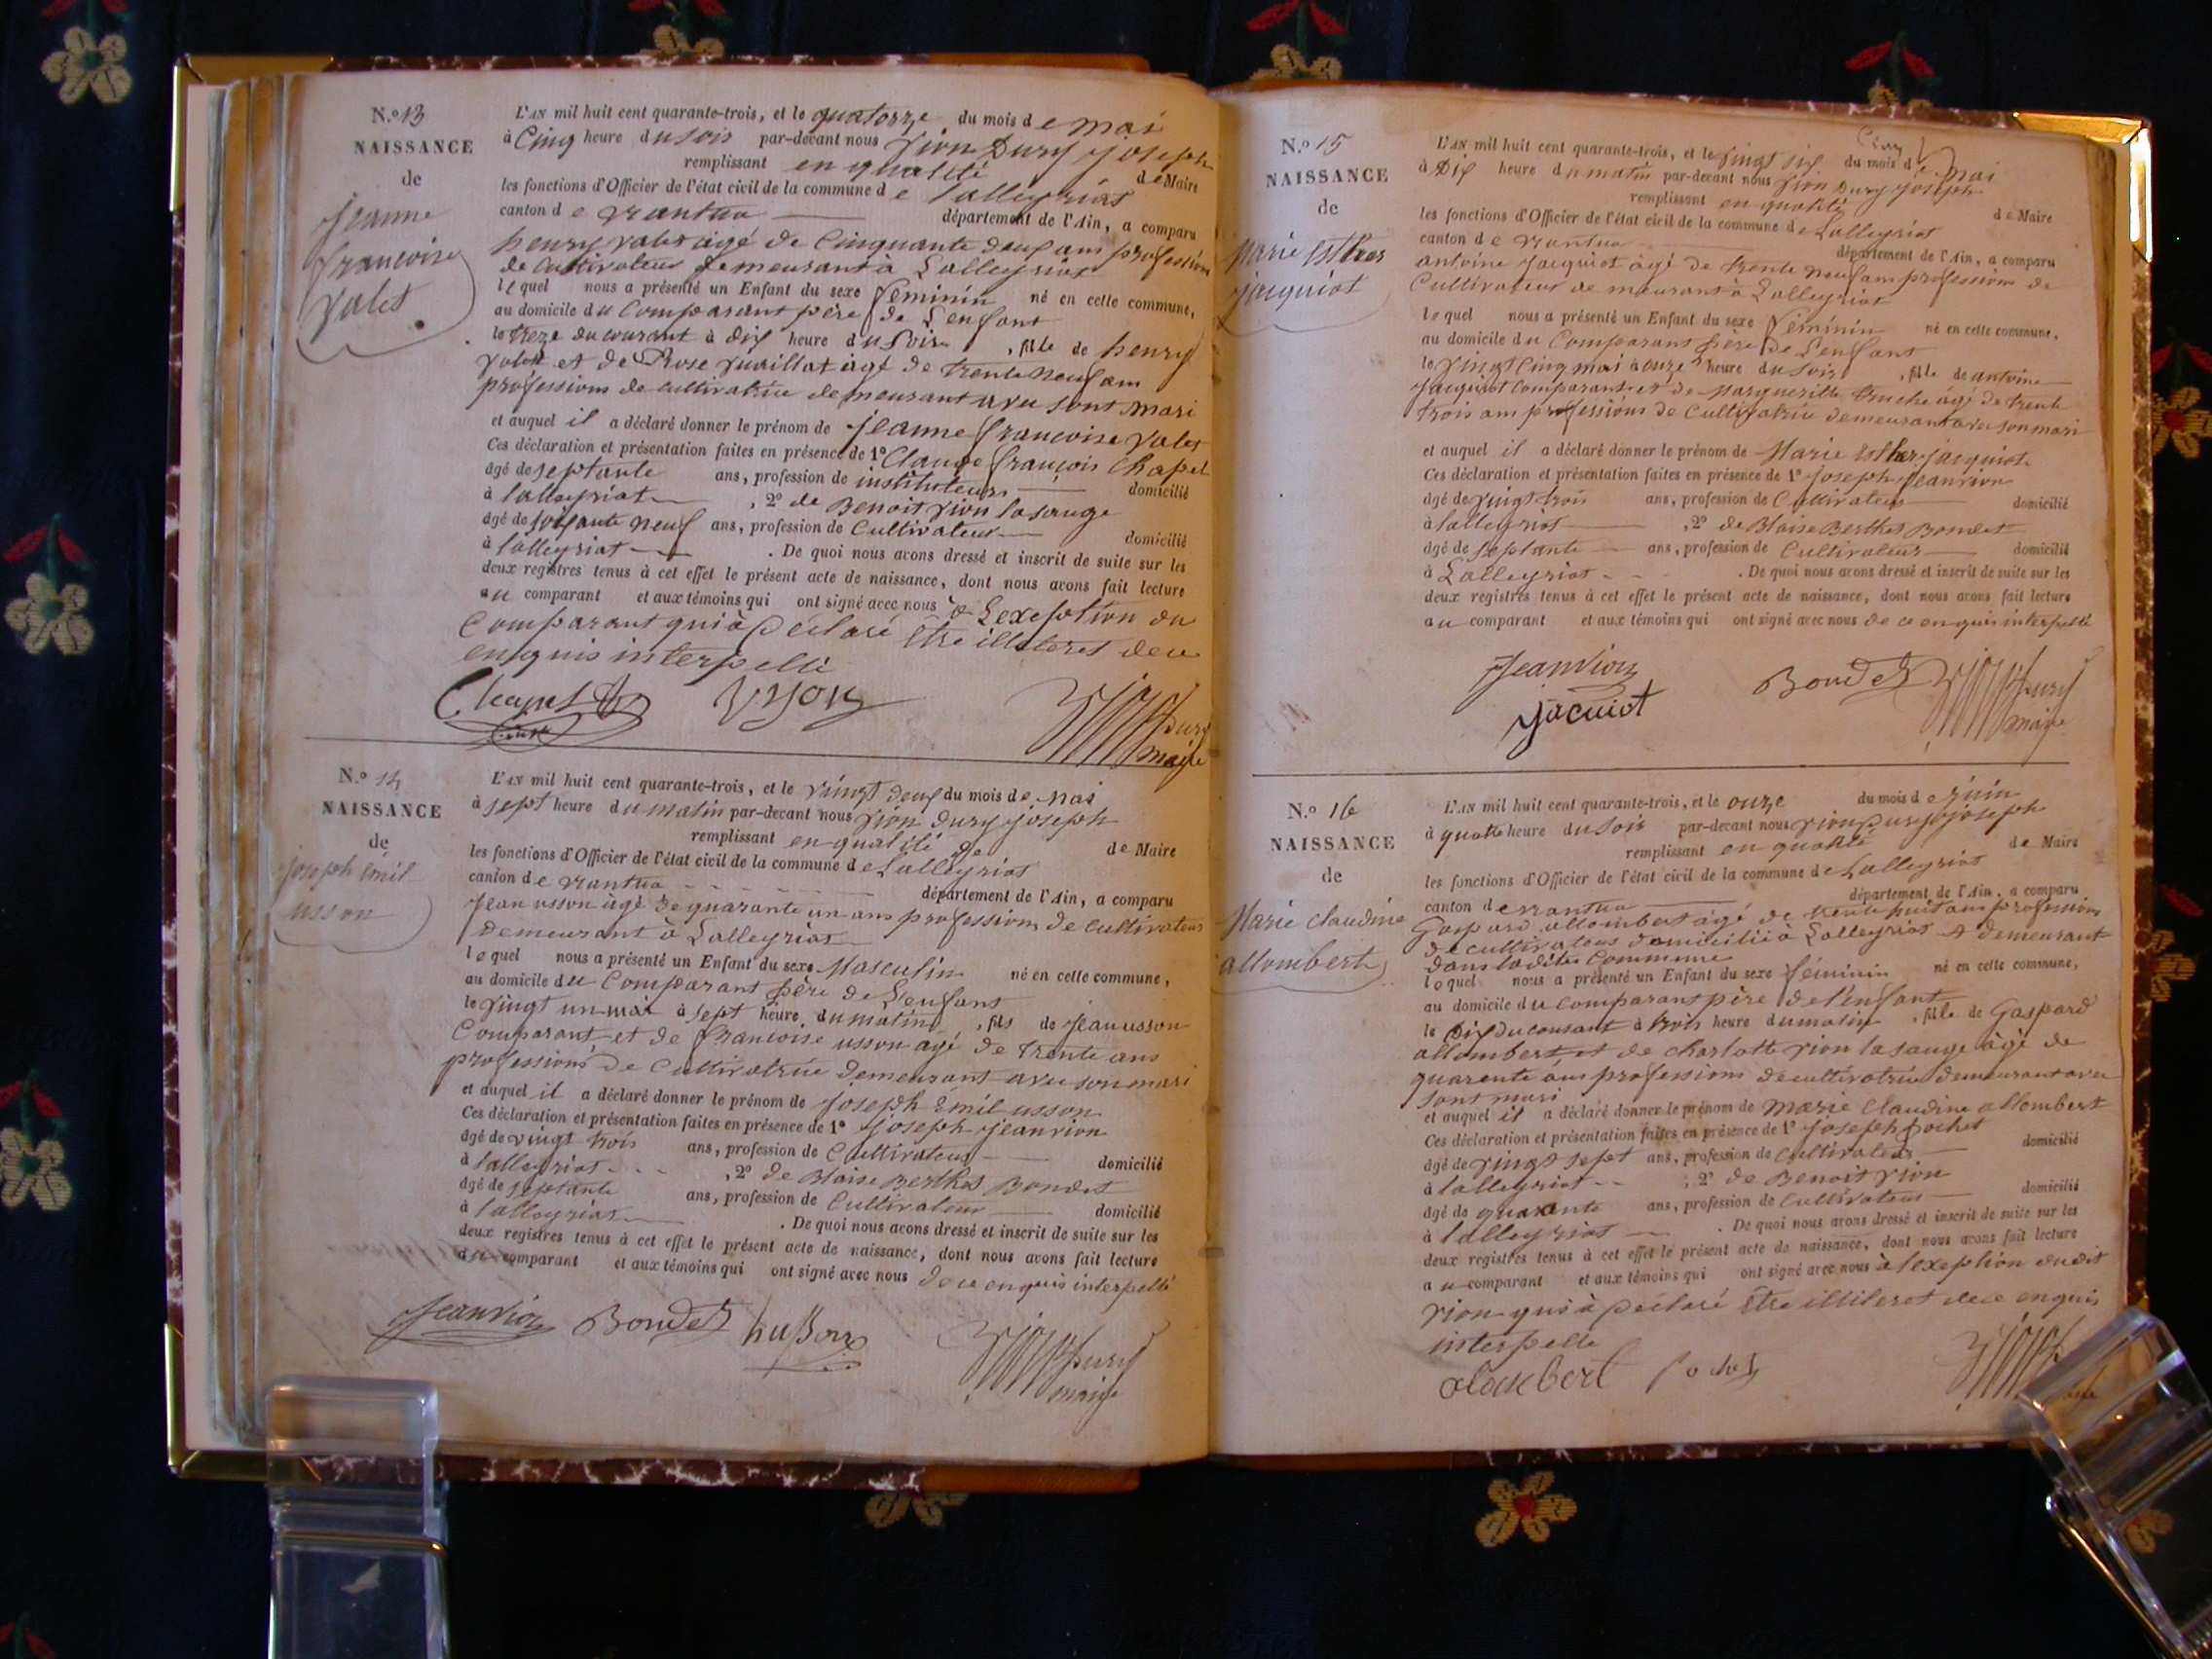 N.o 13
NAISSANCE
de
jeanne
francoise
valet
L'AN mil huit cent quarante-trois, et le quatorze du mois de mai
à Cinq heure du soir par-devant nous vion Dury joseph
remplissant en qualité de Maire
les fonctions d'Officier de l'état civil de la commune de lalleyriat
canton de nantua département de l'Ain, a comparu
henry valet agé de Cinquante deux ans profession
de Cultivateur demeurant à Lalleyriat
lequel nous a présenté un Enfant du sexe feminin né en cette commune,
au domicile du Comparant père de L'enfant
le treze du courant à dix heure du soir , fille de henry
valet et de Rose vuaillat agé de trente neuf ans
professions de cultivatrice demeurant avec sont mari
et auquel il a déclaré donner le prénom de jeanne francoise valet
Ces déclaration et présentation faites en présence de 1o Claude françois Chapel
âgé de septante ans, profession de instituteur domicilié
à lalleyriat , 2o de Benoit vion lasauge
âgé de soixante neuf ans, profession de Cultivateur domicilié
à lalleyriat . De quoi nous avons dressé et inscrit de suite sur les
deux registres tenus à cet effet le présent acte de naissance, dont nous avons fait lecture
au comparant et aux témoins qui ont signé avec nous à L'exeption du
Comparant qui à Déclaré être illiteret de ce
enquis interpellé
vion
Dury
maire
N.o 14
NAISSANCE
de
joseph émil
usson
L'AN mil huit cent quarante-trois, et le vingt deux du mois de mai
à sept heure du matin par-devant nous vion dury joseph
remplissant en qualité de de Maire
les fonctions d'Officier de l'état civil de la commune de Lalleyriat
canton de nantua département de l'Ain, a comparu
jean usson agé de quarante un ans profession de cultivateur
demeurant à Lalleyriat
lequel nous a présenté un Enfant du sexe Masculin né en cette commune,
au domicile du Comparant père de L'enfant
le vingt un mai à sept heure du matin , fils de jean usson
Comparant et de francoise usson agé de trente ans
professions de Cultivatrice demeurant avec son mari
et auquel il a déclaré donner le prénom de joseph émil usson
Ces déclaration et présentation faites en présence de 1o joseph jeanvion
âgé de vingt trois ans, profession de Cultivateur domicilié
à lalleyriat , 2o de Blaise Berthet Bondet
âgé de septante ans, profession de Cultivateur domicilié
à lalleyriat . De quoi nous avons dressé et inscrit de suite sur les
deux registres tenus à cet effet le présent acte de naissance, dont nous avons fait lecture
au comparant et aux témoins qui ont signé avec nous de ce enquis interpellé
Jeanvion Bondet husson
Dury
maire
N.o 15
NAISSANCE
de
Marie Esther
jacquiot
L'AN mil huit cent quarante-trois, et le vingt six du mois de mai
à Dix heure du matin par-devant nous vion Dury joseph
remplissant en qualité de Maire
les fonctions d'Officier de l'état civil de la commune de Lalleyriat
canton de nantua département de l'Ain, a comparu
antoine jacquiot àgé de trente neuf ans profession de
Cultivateur demeurant à Lalleyriat
lequel nous a présenté un Enfant du sexe féminin né en cette commune,
au domicile du Comparant père de L'enfant
le vingt Cinq mai à onze heure du soir , fille de antoine
jacquiot Comparant et de Marguerite truche agé de trente
trois ans professions de Cultivatrice demeurant avec son mari
et auquel il a déclaré donner le prénom de Marie Esther jacquiot
Ces déclaration et présentation faites en présence de 1o joseph jeanvion
âgé de vingt trois ans, profession de Cultivateur domicilié
à lalleyriat , 2o de Blaise Berthet Bondet
âgé de septante ans, profession de Cultivateur domicilié
à Lalleyriat . De quoi nous avons dressé et inscrit de suite sur les
deux registres tenus à cet effet le présent acte de naissance, dont nous avons fait lecture
au comparant et aux témoins qui ont signé avec nous de ce enquis interpellé
Jeanvion Bondet Dury
jacuiot maire
N.o 16
NAISSANCE
de
Marie claudine
allombert
L'AN mil huit cent quarante-trois, et le onze du mois de juin
à quatre heure du soir par-devant nous vion Dury joseph
remplissant en qualité de Maire
les fonctions d'Officier de l'état civil de la commune de Lalleyriat
canton de nantua département de l'Ain, a comparu
Gaspard allombert agé de trente huit ans profession
de cultivateur domicilié à Lalleyriat et demeurant
dans la dite Commune
lequel nous a présenté un Enfant du sexe féminin né en cette commune,
au domicile du comparant père de l'enfant
le Dix du courant à trois heure du matin , fille de Gaspard
allombert et de charlotte vion lasauge agé de
quarente ans professions de cultivatrice demeurant avec
sont mari
et auquel il a déclaré donner le prénom de Marie claudine allombert
Ces déclaration et présentation faites en présence de 1o joseph pochet
âgé de vingt sept ans, profession de Cultivateur domicilié
à lalleyriat , 2o de Benoit vion
âgé de quarante ans, profession de Cultivateur domicilié
à lalleyriat . De quoi nous avons dressé et inscrit de suite sur les
deux registres tenus à cet effet le présent acte de naissance, dont nous avons fait lecture
au comparant et aux témoins qui ont signé avec nous à l'exeption dudit
vion qui à Déclaré être illiteret de ce enquis
interpellé
pochet